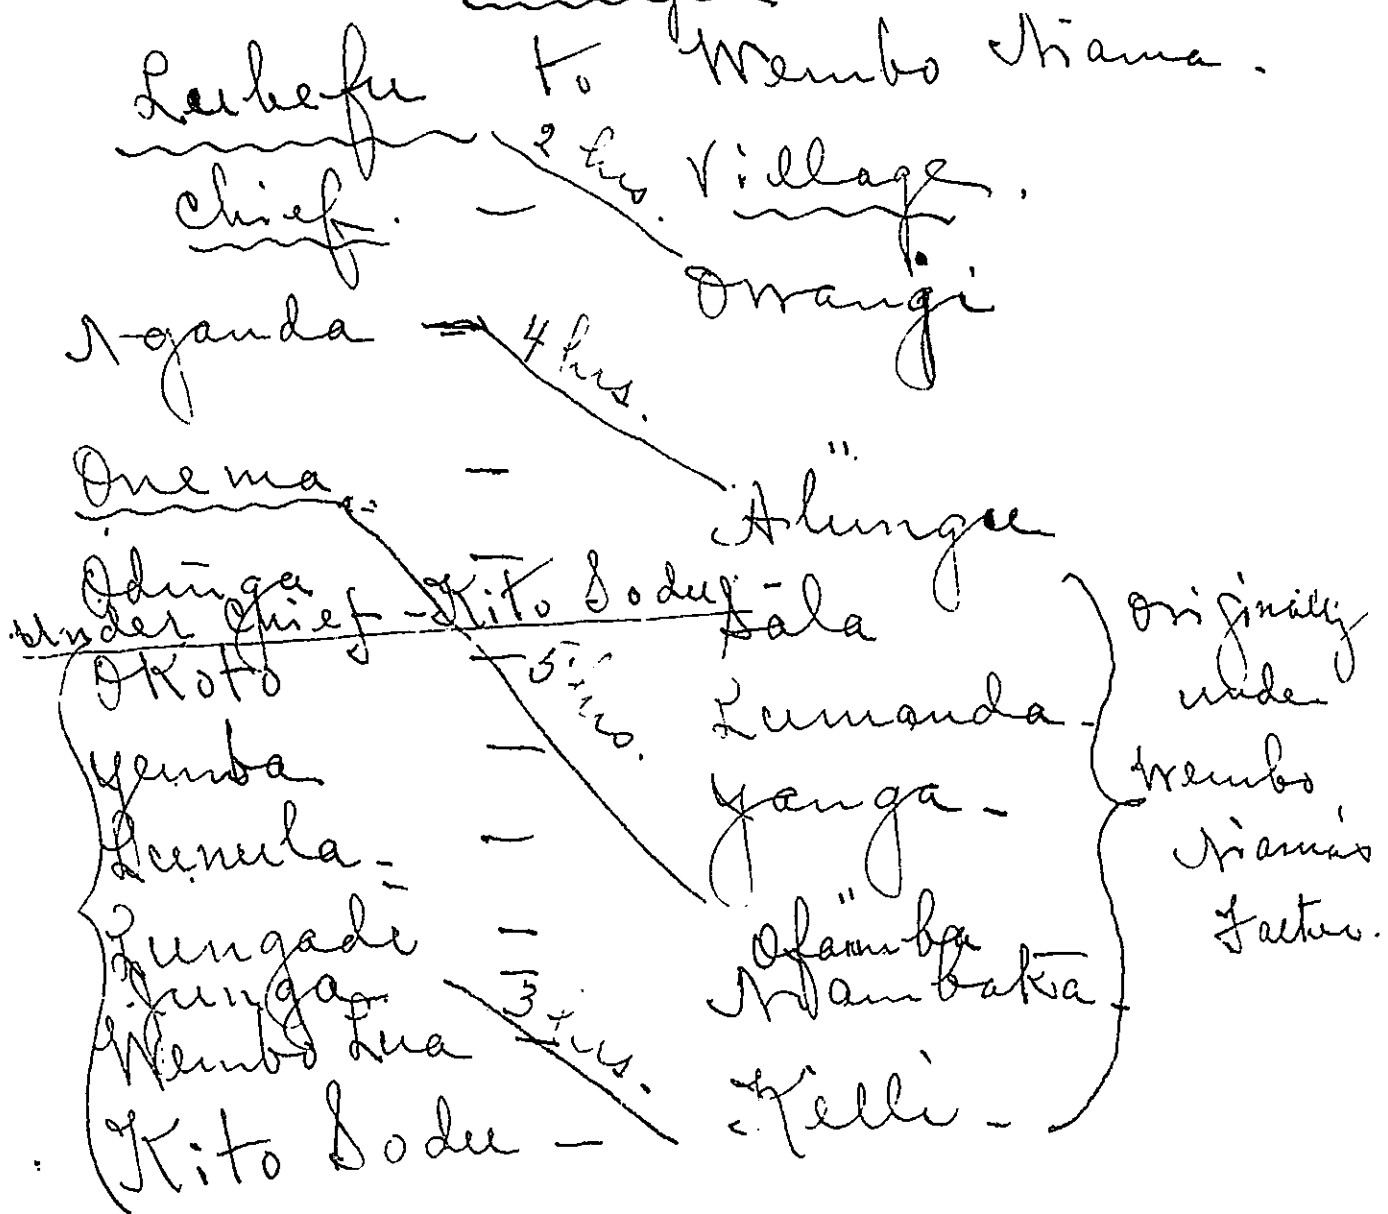 Lubefu to Wembo Niama.
Chief. - 2 hrs. Village.
Owangi
N-ganda - 4 hrs.
Onema -
Alüngu
Odŭnga -
Under Chief - Kito Sodu Sāla
Okoto - 5 hrs. Lumanda -
Yemba - Yanga -
Lunula - -
Lungadi - Ofämba
Junga - 3 hrs. Nambaka -
Wembo Lua -
Kito Sodu - Kelli -
Originally
unde
Wembo
Niama's
Father.